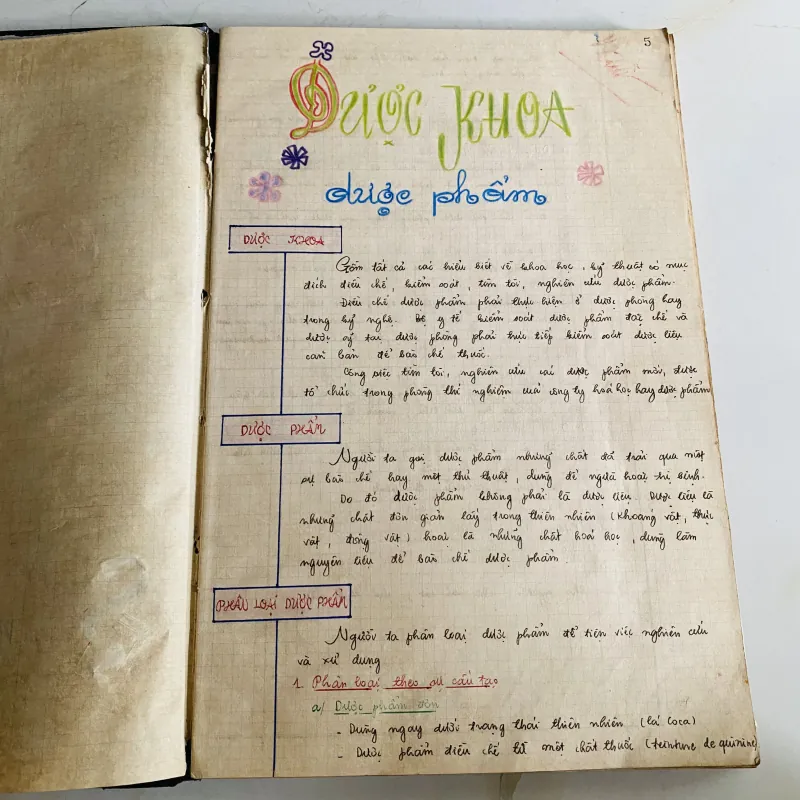 5
DƯỢC KHOA
dược phẩm
DƯỢC KHOA
Gồm tất cả các hiểu biết về khoa học, kỹ thuật có mục
đích điều chế, kiểm soát, tìm tòi, nghiên cứu dược phẩm.
Điều chế dược phẩm phải thực hiện ở dược phòng hay
trong kỹ nghệ. Bộ y tế kiểm soát dược phẩm đặc chế và
dược sỹ tại dược phòng phải trực tiếp kiểm soát dược liệu
căn bản để bào chế thuốc.
Công việc tìm tòi, nghiên cứu các dược phẩm mới, được
tổ chức trong phòng thí nghiệm của công ty hoá học hay dược phẩm
DƯỢC PHẨM
Người ta gọi dược phẩm những chất đã trải qua một
sự bào chế hay một thủ thuật, dùng để ngừa hoặc trị bệnh.
Do đó dược phẩm không phải là dược liệu. Dược liệu là
những chất đơn giản lấy trong thiên nhiên (khoáng vật, thực
vật, động vật) hoặc là những chất hoá học, dùng làm
nguyên liệu để bào chế dược phẩm.
PHÂN LOẠI DƯỢC PHẨM
Người ta phân loại dược phẩm để tiện việc nghiên cứu
và xử dụng
1. Phân loại theo sự cấu tạo
a/ Dược phẩm đơn
- Dùng ngay dưới trạng thái thiên nhiên (lá coca)
- Dược phẩm điều chế từ một chất thuốc (teinture de quinine)